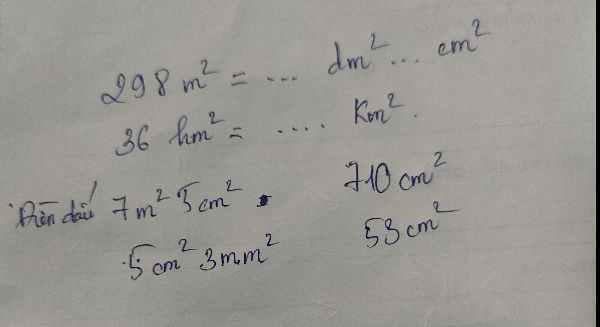 298 m² = ... dm² ... cm²
36 hm² = .... Km².
Điền dấu 7m² 5cm² . 710 cm²
5 cm² 3mm² 53 cm²